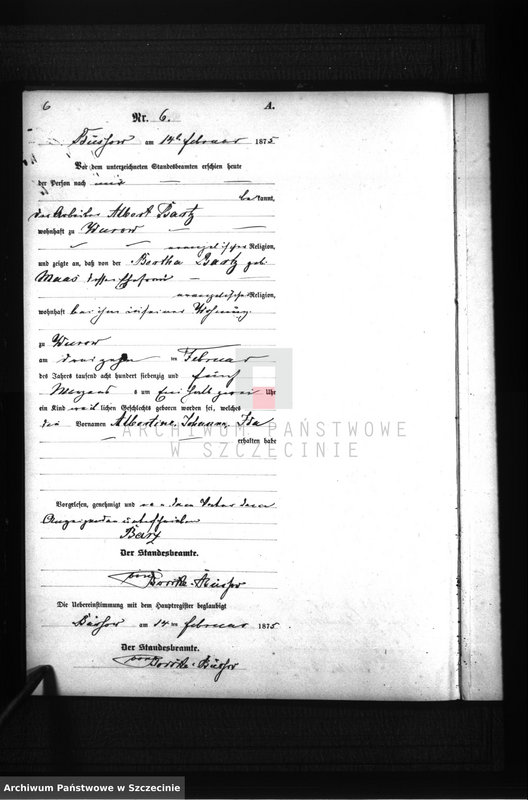 6 A.
Nr. 6.
Büssow am 14t Februar 1875
Vor dem unterzeichneten Standesbeamten erschien heute
der Person nach
bekannt,
der Arbeiter Albert Bartz
wohnhaft zu Wurow
evangelischer Religion,
und zeigte an, daß von der Bertha Bartz geb.
Maas dessen Ehefrau
evangelischer Religion,
wohnhaft bei ihm in seiner Wohnung
zu Wurow
am dreizehn ten Februar
des Jahres tausend acht hundert siebenzig und fünf
Morgens um halb Uhr
ein Kind weiblichen Geschlechts geboren worden sei, welches
die Vornamen Albertine, Johanne, Ida
erhalten habe
Vorgelesen, genehmigt und von dem Vater dem
Anzeigenden unterschrieben
Bartz
Der Standesbeamte.
von Büssow
Die Uebereinstimmung mit dem Hauptregister beglaubigt
Büssow am 14 ten Februar 1875.
Der Standesbeamte.
von Büssow
ARCHIWUM PAŃSTWOWE
W SZCZECINIE
Archiwum Państwowe w Szczecinie